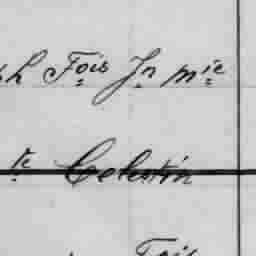 h Fois Jn mie
te Celestin
Fois